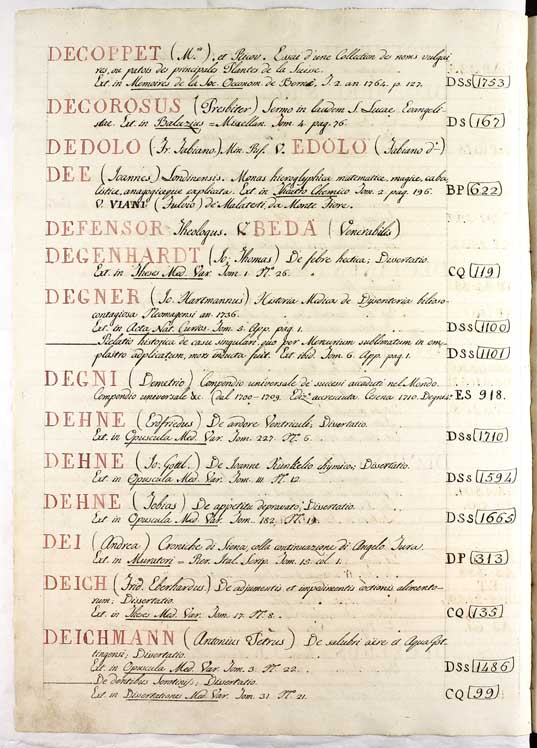 DECOPPET (M.r), et Essai d'une Collection des noms vulgai-
res, ou patois des principales Plantes de la Suisse.
Ext. in Memoires de la Soc. Oeconom. de Berne, T. 2. an 1764. p. 127. DSS 1753
DECOROSUS (Presbiter) Sermo in laudem S. Lucae Evangeli-
stae. Ext. in Baluzius = Miscellan. Tom. 4. pag. 76. DS 167
DEDOLO (Fr. Fabiano) Min. Rif. V. EDOLO (Fabiano d')
DEE (Joannes) Londinensis. Monas hieroglyphica matematice, magice, caba-
listice, anagogiceque explicata. Ext. in Theatro Chemico Tom. 2. pag. 196. BP 622
V. VIANI (Fulvio) de Malatesti, da Monte Fiore.
DEFENSOR Theologus. V. BEDA (Venerabilis)
DEGENHARDT (Jo. Thomas) De febre hectica; Dissertatio.
Ext. in Theses Med. Var. Tom. 1. N.o 26. CQ 119
DEGNER (Jo. Hartmannus) Historia Medica de Dysenteria bilioso-
contagiosa Neomagensi an. 1736.
Ext. in Acta Nat. Curios. Tom. 5. App. pag. 1. DSS 1100
Relatio historica de casu singulari, quo per Mercurium sublimatum in em-
plastro applicatum, mors inducta fuit. Ext. ibid. Tom. 6. App. pag. 1. DSS 1101
DEGNI (Demetrio) Compendio universale de' successi accaduti nel Mondo.
Compendio universale &c. (dal 1700-1709. Ediz.e accresciuta Cesena 1710. Degnis. ES 918.
DEHNE (Erdfriedus) De ardore Ventriculi, Dissertatio.
Ext. in Opuscula Med. Var. Tom. 227. N.o 6. DSS 1710
DEHNE (Jo. Gottl.) De Joanne Kunkelio chymico; Dissertatio.
Ext. in Opuscula Med. Var. Tom. 111. N.o 12. DSS 1594
DEHNE (Tobias) De appetitu depravato, Dissertatio.
Ext. in Opuscula Med. Var. Tom. 182. N.o 19. DSS 1665
DEI (Andrea) Croniche di Siena, colla continuazione di Angelo Tura.
Ext. in Muratori = Rer. Ital. Scrip. Tom. 15. col. 1. DP 313
DEICH (Frid. Eberhardus) De adjumentis et impedimentis coctionis alimento-
rum; Dissertatio.
Ext. in Theses Med. Var. Tom. 17. N.o 8. CQ 135
DEICHMANN (Antonius Petrus) De salubri aëre et Aqua Got-
tingensi; Dissertatio.
Ext. in Opuscula Med. Var. Tom. 3. N.o 22. DSS 1486
De dentibus Serotinis; Dissertatio.
Ext. in Dissertationes Med. Var. Tom. 31. N.o 21. CQ 99